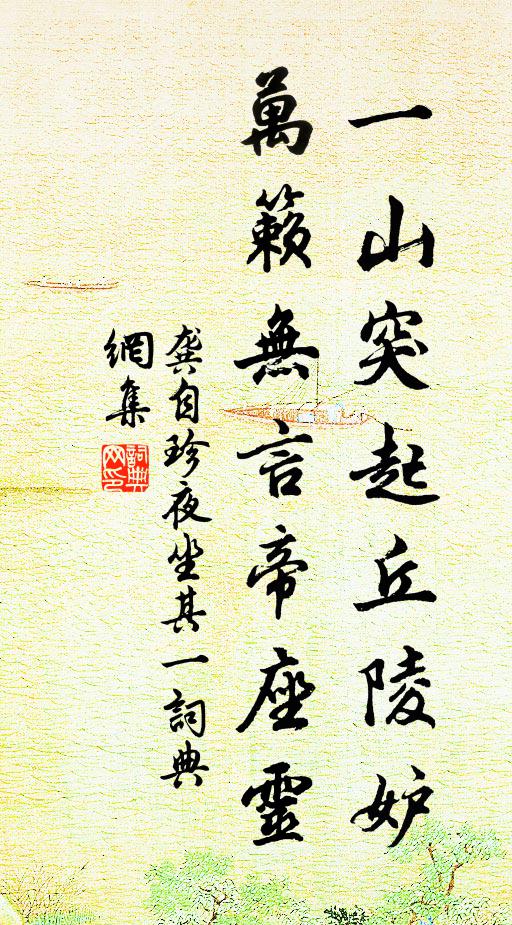 一山突起丘陵妒
萬籟無言帝座靈
龔自珍夜坐其一詞典
網集
詞典网印